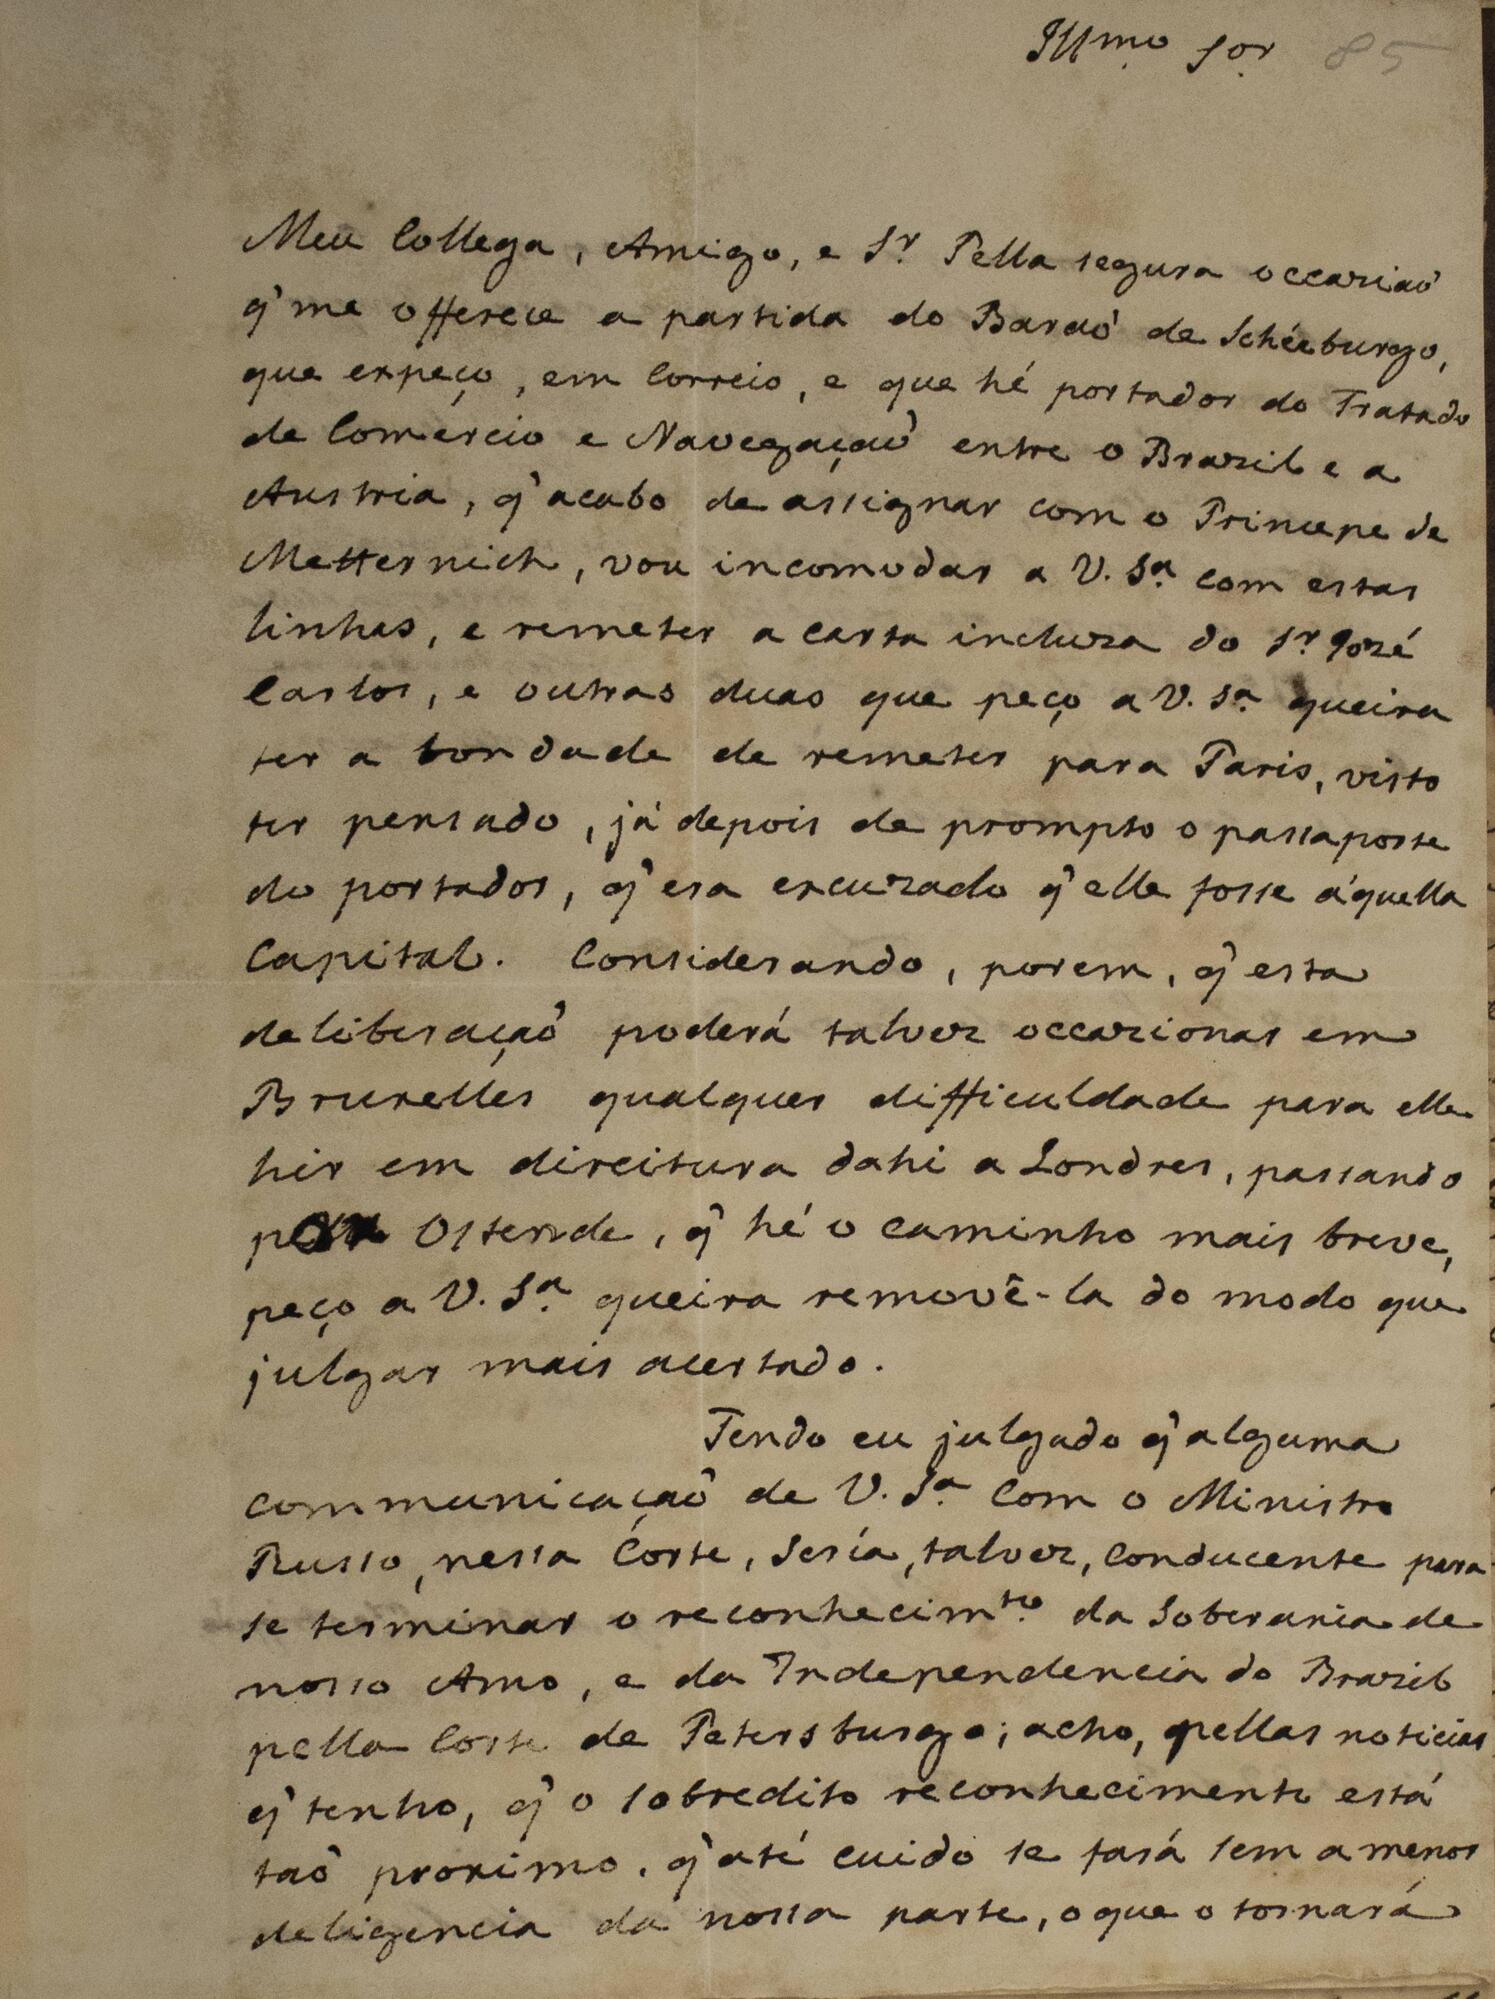 Illmo Sor 85
Meu Collega, Amigo, e Sr. Pella segura occaziaõ
q' me offerece a partida do Baraõ de Schéeburgo,
que expeço, em Correio, e que hé portador do Tratado
de Comercio e Navegaçaõ entre o Brazil e a
Austria, q' acabo de assignar com o Principe de
Metternich, vou incomodar a V. Sa. com estas
linhas, e remeter a carta incluza do Sr. Jozé
Carlos, e outras duas que peço a V. Sa. queira
ter a bondade de remeter para Paris, visto
ter pensado, já depois de prompto o passaporte
do portador, q' era excuzado q' elle fosse áquella
Capital. Considerando, porem, q' esta
deliberaçaõ poderá talvez occazionar em
Bruxelles qualquer difficuldade para elle
hir em direitura dahi a Londres, passando
por Ostende, q' hé o caminho mais breve,
peço a V. Sa. queira removê-la do modo que
julgar mais acertado.
Tendo eu julgado q' alguma
communicaçaõ de V. Sa. com o Ministro
Russo, nessa Corte, sería, talvez, conducente para
se terminar o reconhecimto. da Soberania de
nosso Amo, e da Independencia do Brazil
pella Corte de Petersburgo; acho, pellas noticias
q' tenho, q' o sobredito reconhecimento está
taõ proximo, q' até cuido se fará sem a menor
deligencia da nossa parte, o que o tornará